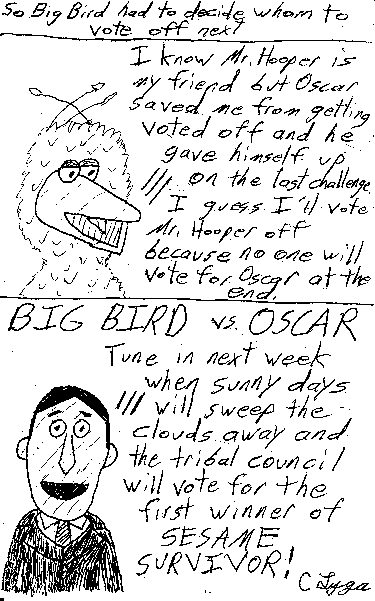 So Big Bird had to decide whom to
vote off next
I know Mr. Hooper is
my friend but Oscar
saved me from getting
voted off and he
gave himself up
on the last challenge.
I guess I'll vote
Mr. Hooper off
because no one will
vote for Oscar at the
end.
BIG BIRD vs. OSCAR
Tune in next week
when sunny days
will sweep the
clouds away and
the tribal council
will vote for the
first winner of
SESAME
SURVIVOR!
C Lyga